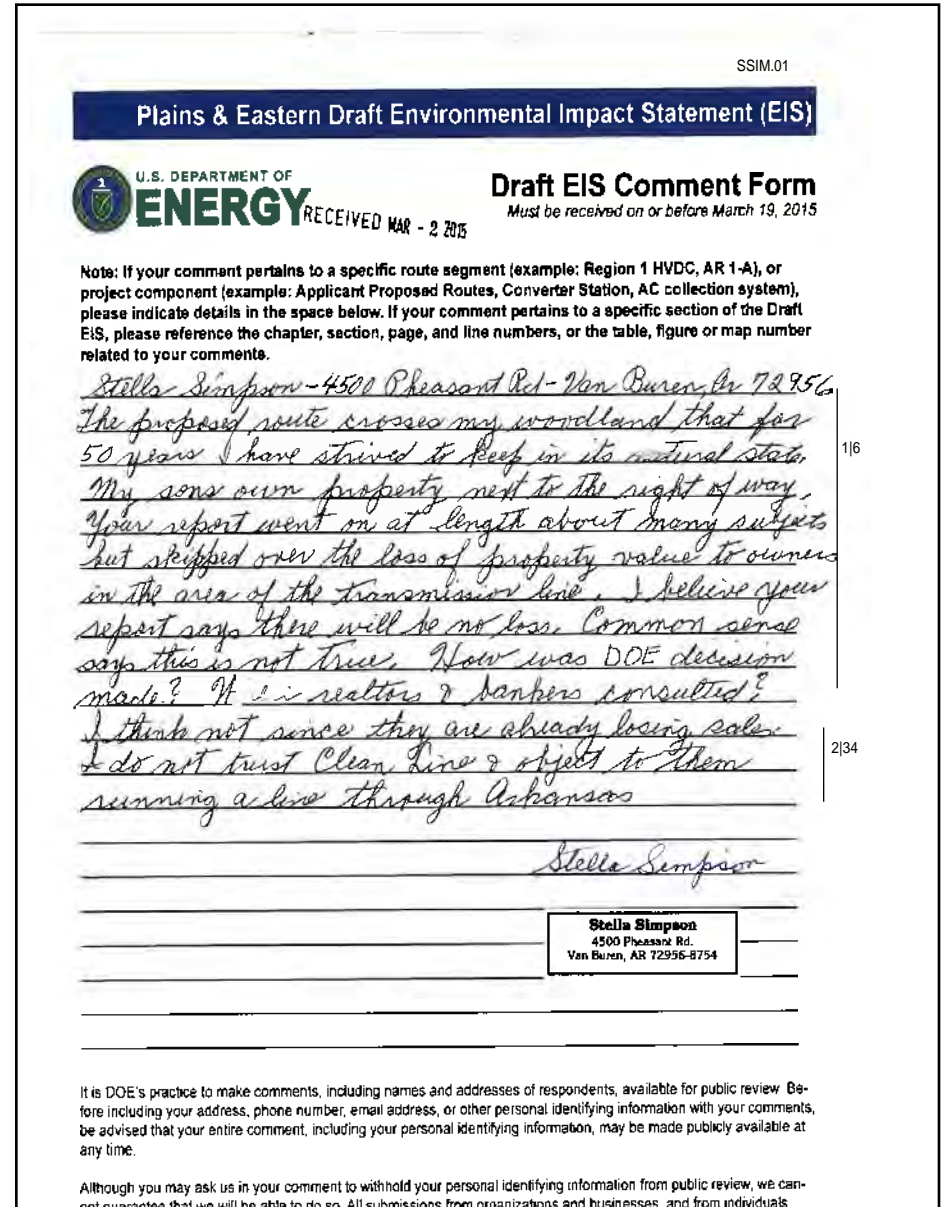 SSIM.01
Plains & Eastern Draft Environmental Impact Statement (EIS)
U.S. DEPARTMENT OF
ENERGY
RECEIVED MAR - 2 2015
Draft EIS Comment Form
Must be received on or before March 19, 2015
Note: If your comment pertains to a specific route segment (example: Region 1 HVDC, AR 1-A), or
project component (example: Applicant Proposed Routes, Converter Station, AC collection system),
please indicate details in the space below. If your comment pertains to a specific section of the Draft
EIS, please reference the chapter, section, page, and line numbers, or the table, figure or map number
related to your comments.
Stella Simpson - 4500 Pheasant Rd - Van Buren, Ar 72956
The proposed route crosses my woodland that for
50 years I have strived to keep in its natural state.
1|6
My sons own property next to the right of way.
Your report went on at length about many subjects
but skipped over the loss of property value to owners
in the area of the transmission line. I believe your
report says there will be no loss. Common sense
says this is not true. How was DOE decision
made? realtors & bankers consulted?
I think not since they are already losing sales.
2|34
I do not trust Clean Line & object to them
running a line through Arkansas
Stella Simpson
Stella Simpson
4500 Pheasant Rd.
Van Buren, AR 72956-8754
It is DOE's practice to make comments, including names and addresses of respondents, available for public review. Be-
fore including your address, phone number, email address, or other personal identifying information with your comments,
be advised that your entire comment, including your personal identifying information, may be made publicly available at
any time.
Although you may ask us in your comment to withhold your personal identifying information from public review, we can-
not guarantee that we will be able to do so. All submissions from organizations and businesses, and from individuals